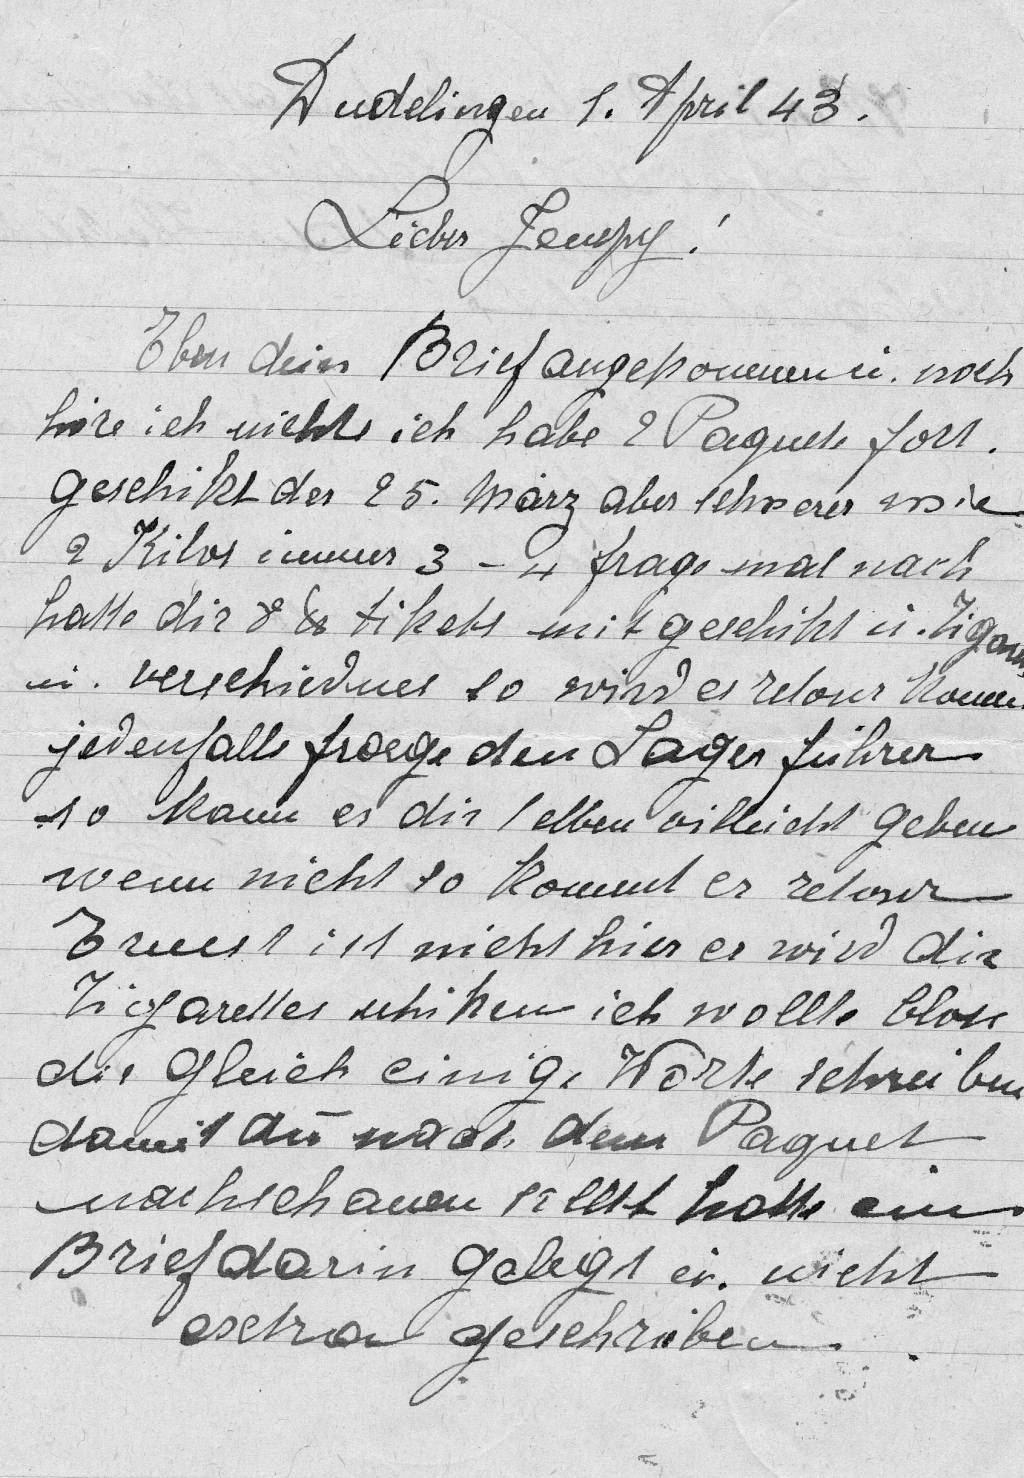 Dudelingen 1. April 43.
Lieber Jempy!
Eben dein Brief angekommen u. noch
höre ich nichts ich habe 2 Paquete fort.
geschikt der 25. März aber schwerer wie
2 Kilos immer 3 - 4 frage mal nach
hatte dir 8 tikets mit geschikt u. Zigar
u. verschiednes so wird es retour komm
jedenfalls fraege den Lager führer
so kann er dir selben villeicht geben
wenn nicht so kommt er retour
Ernest ist nicht hier er wird dir
Zigarettes schiken ich wollte blos
dir gleich einige Worte schreiben
damit du nach dem Paquet
nachschauen sollst hatte ein
Brief darin gelegt u. nicht
extra geschrieben